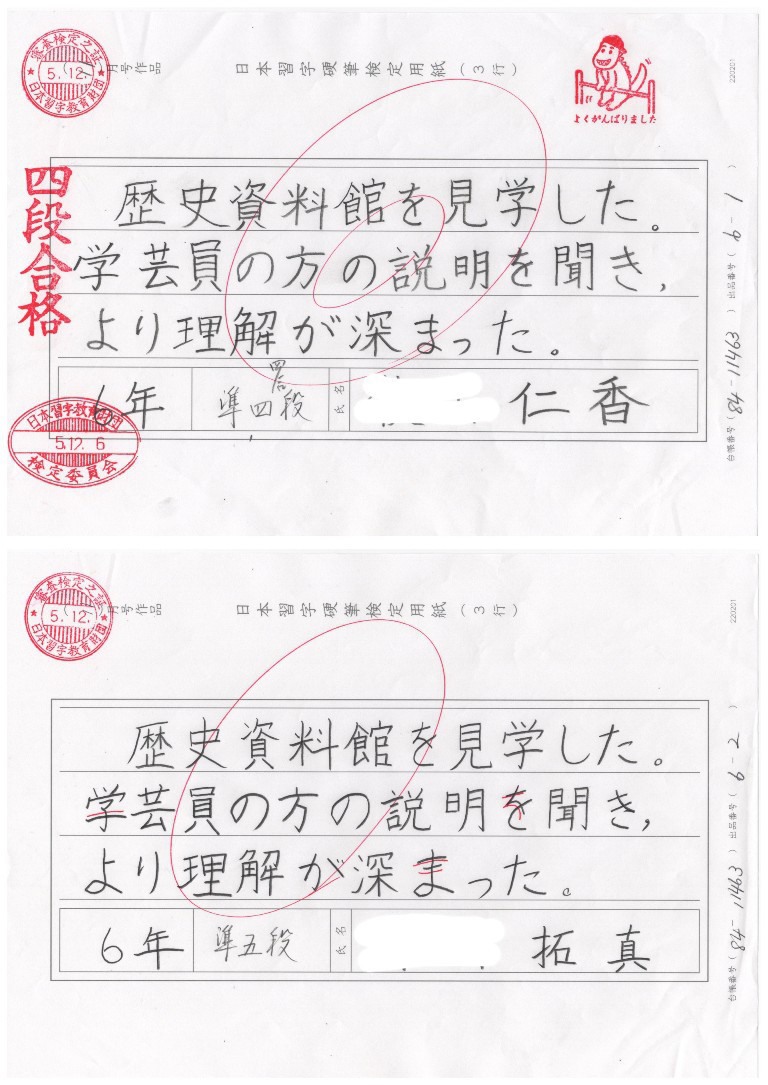 審査検定之証
5.12.
日本習字教育財団
月号作品
日本習字硬筆検定用紙（3行）
よくがんばりました
220201
四段合格
歴史資料館を見学した。
学芸員の方の説明を聞き，
より理解が深まった。
6年
準四段
氏名
仁香
日本習字教育財団
5.12.6
検定委員会
台帳番号（84-11463）出品番号（9-1）
審査検定之証
5.12.
日本習字教育財団
月号作品
日本習字硬筆検定用紙（3行）
220201
歴史資料館を見学した。
学芸員の方の説明を聞き，
より理解が深まった。
6年
準五段
氏名
拓真
台帳番号（84-11463）出品番号（9-2）